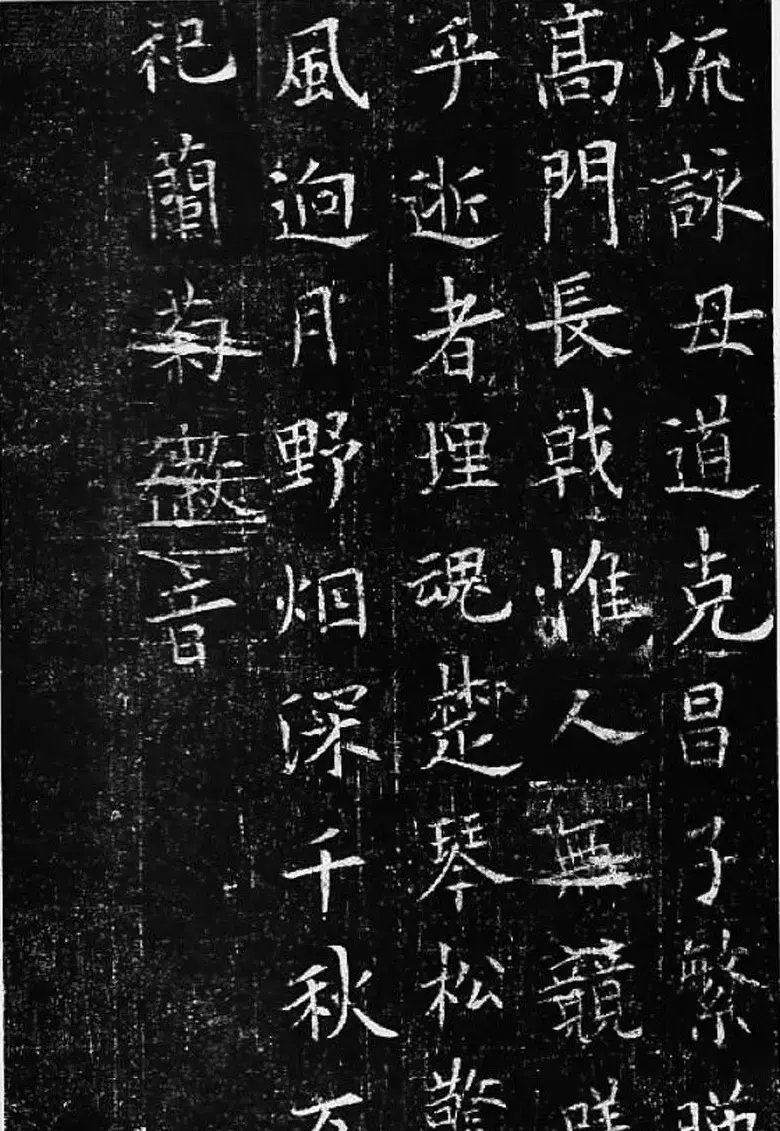 流詠母道克昌子繁
高門長戟惟人無競嗟
乎逝者埋魂楚琴松驚
風逈月野烟深千秋万
祀蘭菊徽音